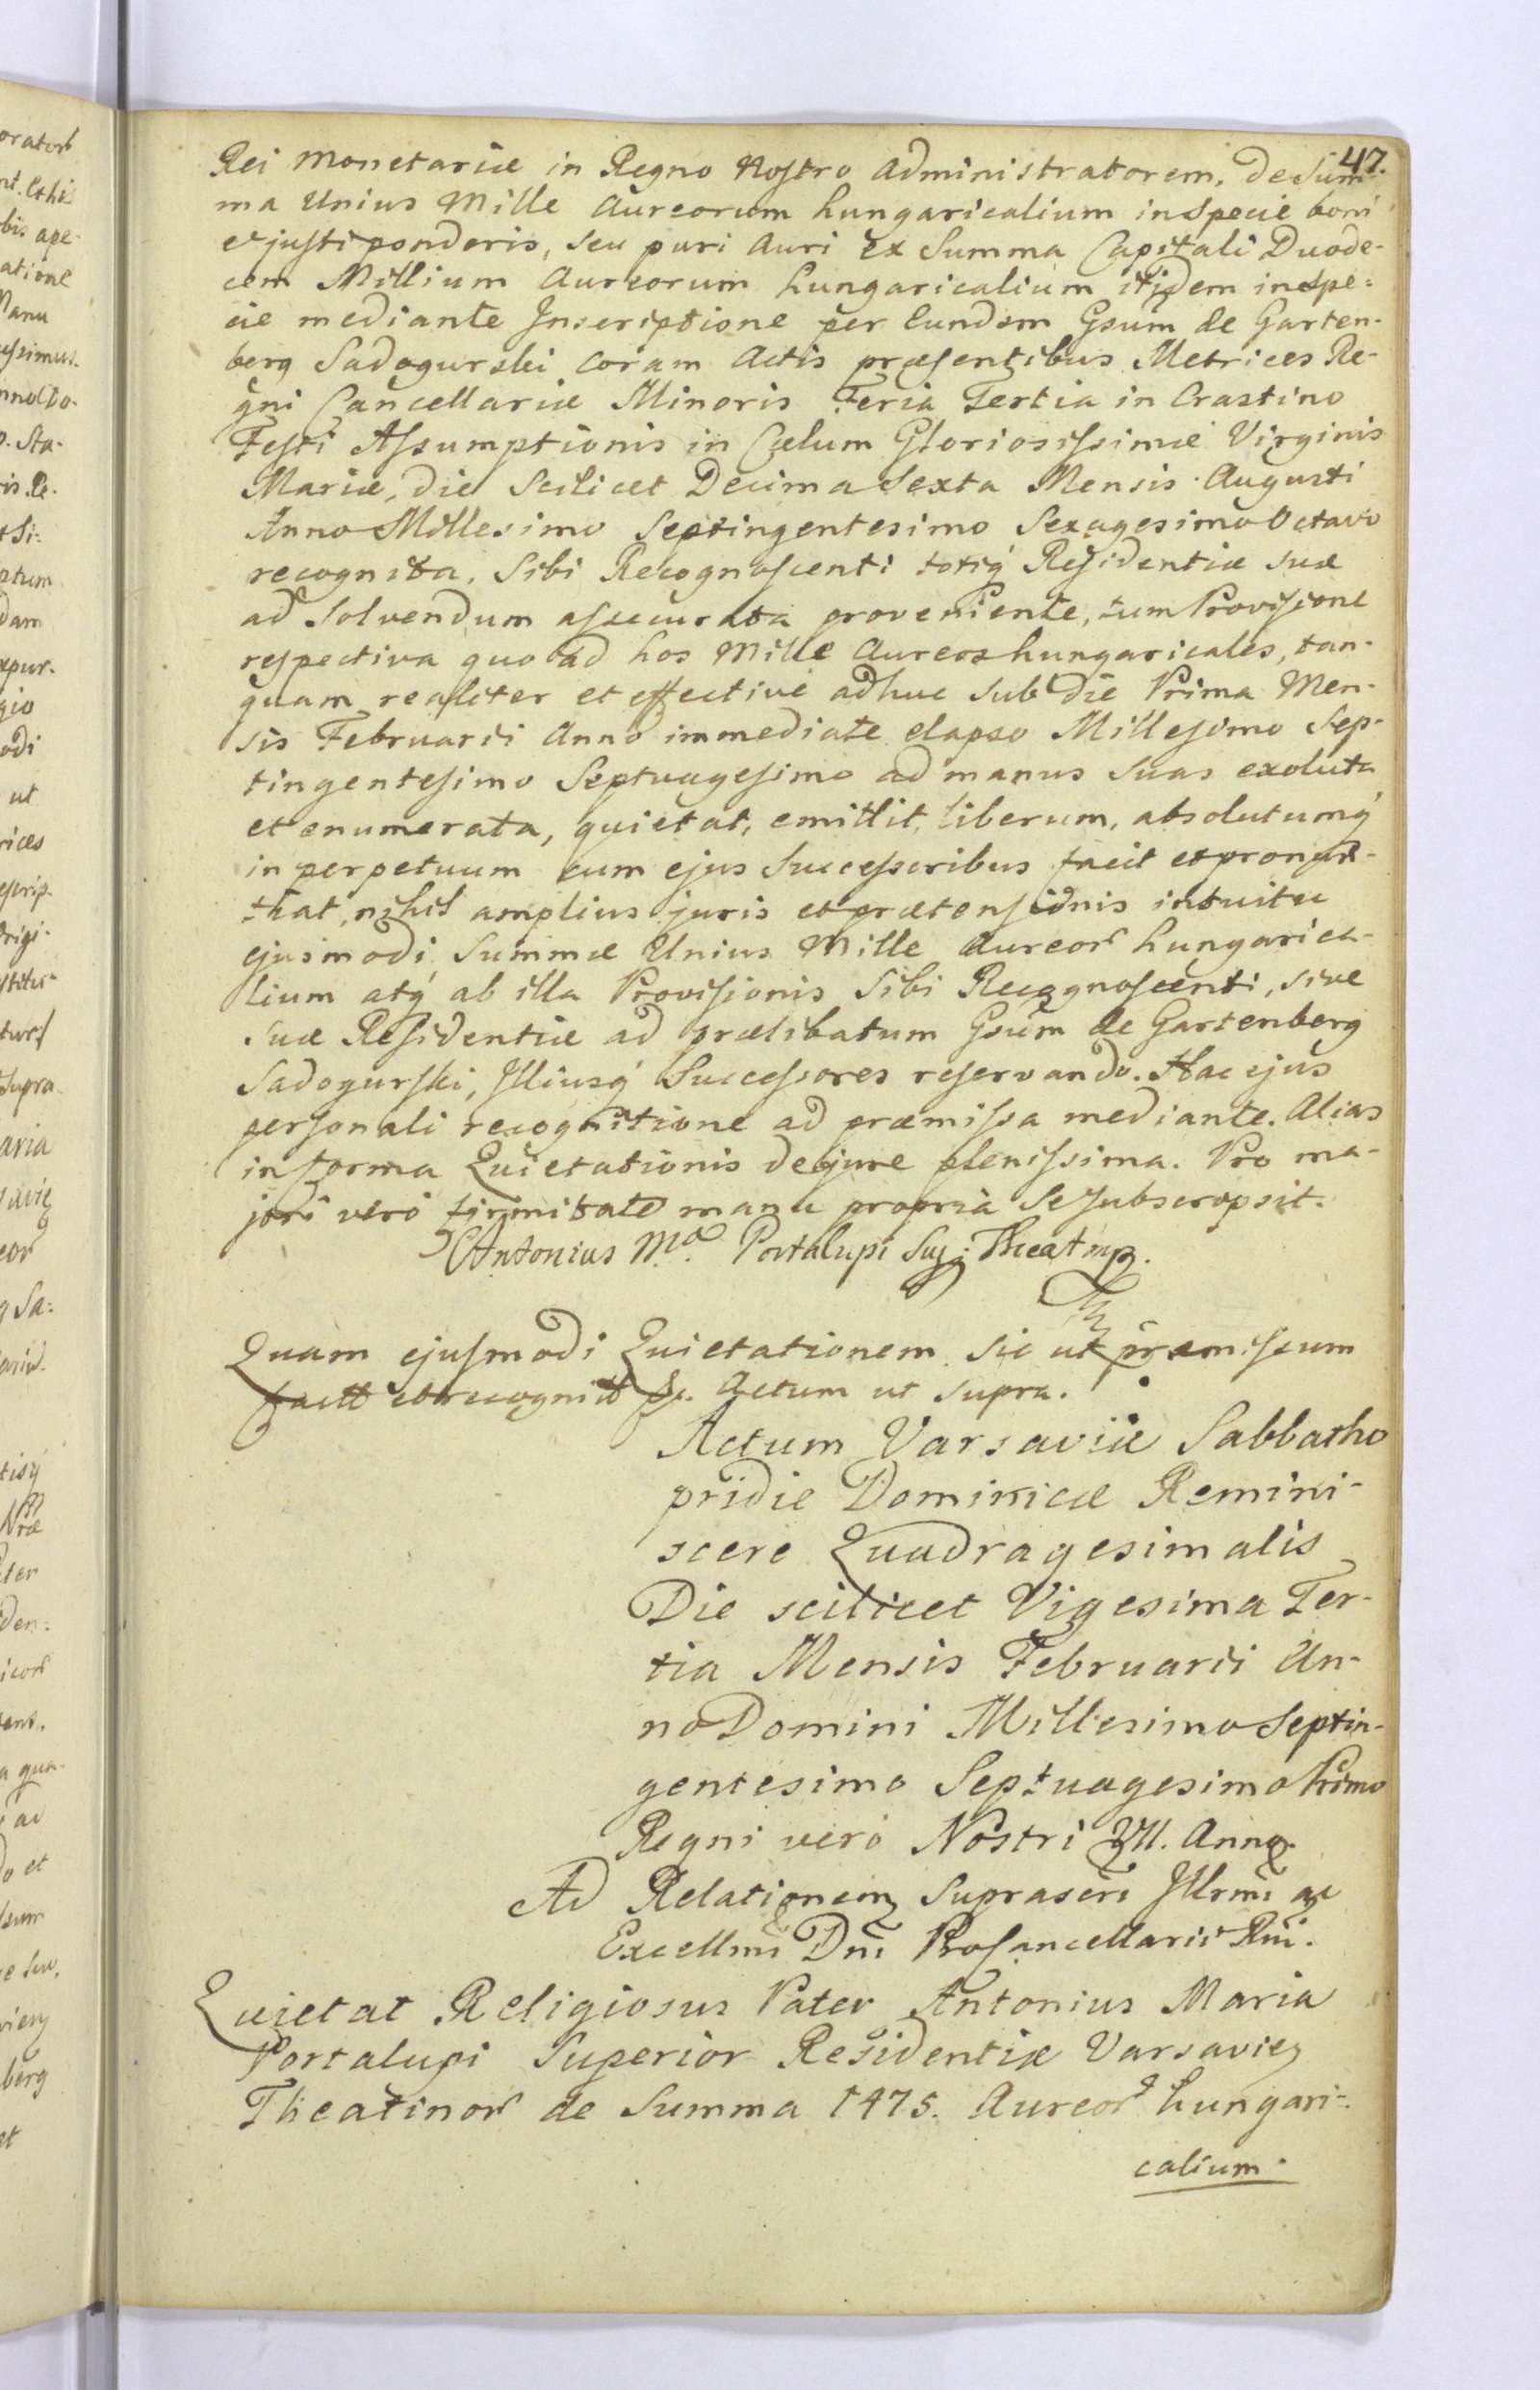 47.
Rei Monetariæ in Regno Nostro Administratorem, de Sum
ma Unius Mille Aureorum hungaricalium in Specie boni
et justi ponderis, seu puri Auri ex Summa Capitali Duode-
cem Millium Aureorum hungaricalium itidem in Spe=
cie mediante Inscriptione per Eundem Gsum de Garten-
berg Sadogurski coram Actis præsentibus Metrices Re-
gni Cancellariæ Minoris Feria Tertia in Crastino
Festi Assumptionis in Cælum Gloriosissimæ Virginis
Mariæ, die Scilicet Decima Sexta Mensis Augusti
Anno Millesimo Septingentesimo Sexagesimo Octavo
recognita, Sibi Recognoscenti totiq Residentiæ suæ
ad Solvendum assecurata proveniente, tum Provisione
respectiva quo ad hos Mille Aureos hungaricales, tan-
quam realiter et effective adhuc sub die Prima Men-
sis Februarii Anno immediate elapso Millesimo Sep-
tingentesimo Septuagesimo ad manus Suas exoluta
et enumerata, quietat, emittit, liberum, absolutumq
in perpetuum cum ejus Successoribus facit et pronun-
tiat, nihil amplius juris et prætensionis intuitu
ejusmodi Summæ Unius Mille Aureor hungarica-
lium atq ab illa Provisionis Sibi Recognoscenti, sive
Suæ Residentiæ ad prælibatum Gsum de Gartenberg
Sadogurski, Illiusq Successores reservando. Hac ejus
personali recognitione ad præmissa mediante. Alias
in forma Quietationis de jure plenissima. Pro ma-
jori vero firmitate manu propria Se Subscripsit.
Antonius Ma. Portalupi Sup: Theat mp.
Quam ejusmodi Quietationem sic ut præmissum
facit et recognit &c. Actum ut supra.
Actum Varsaviæ Sabbatho
pridie Dominicæ Remini-
scere Quadragesimalis
Die scilicet Vigesima Ter-
tia Mensis Februarii An-
no Domini Millesimo Septin-
gentesimo Septuagesimo Primo
Regni vero Nostri VII. Anno.
Ad Relationem Suprascri Illrmi ac
Excellmi Dni ProCancellarii Rni.
Quietat Religiosus Pater Antonius Maria
Portalupi Superior Residentiæ Varsavien
Theatinor de Summa 1475. Aureor hungari-
calium.